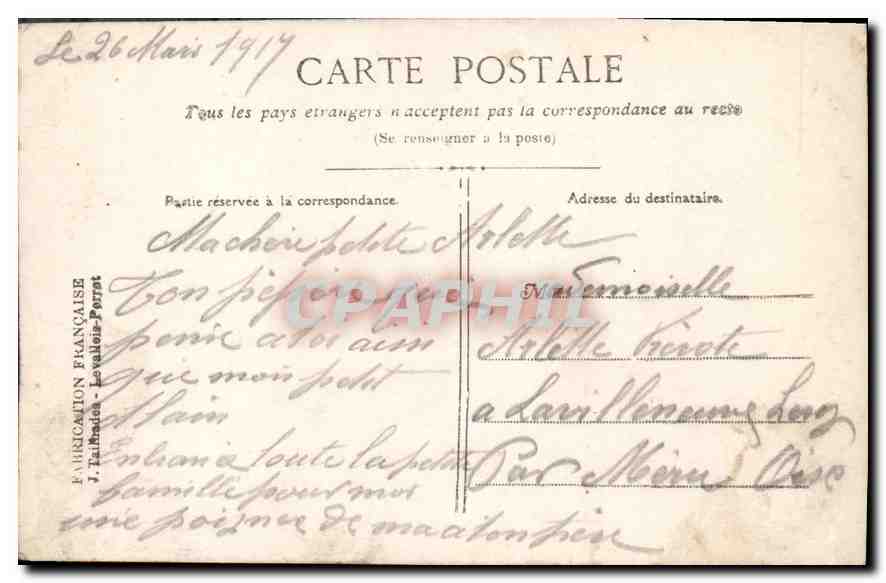 Le 26 Mars 1917
CARTE POSTALE
Tous les pays etrangers n'acceptent pas la correspondance au recto
(Se renseigner a la poste)
Partie réservée à la correspondance.
Ma chère petite Arlette
Ton
pense a toi ainsi
que mon petit
Alain
toute la petite
famille pour moi
une poignee de main a ton père
Adresse du destinataire.
Mademoiselle
Arlette
a Lavilleneuve
Par Méru Oise
FABRICATION FRANÇAISE
J. Tailhades - Levallois-Perret
CPAPHIL